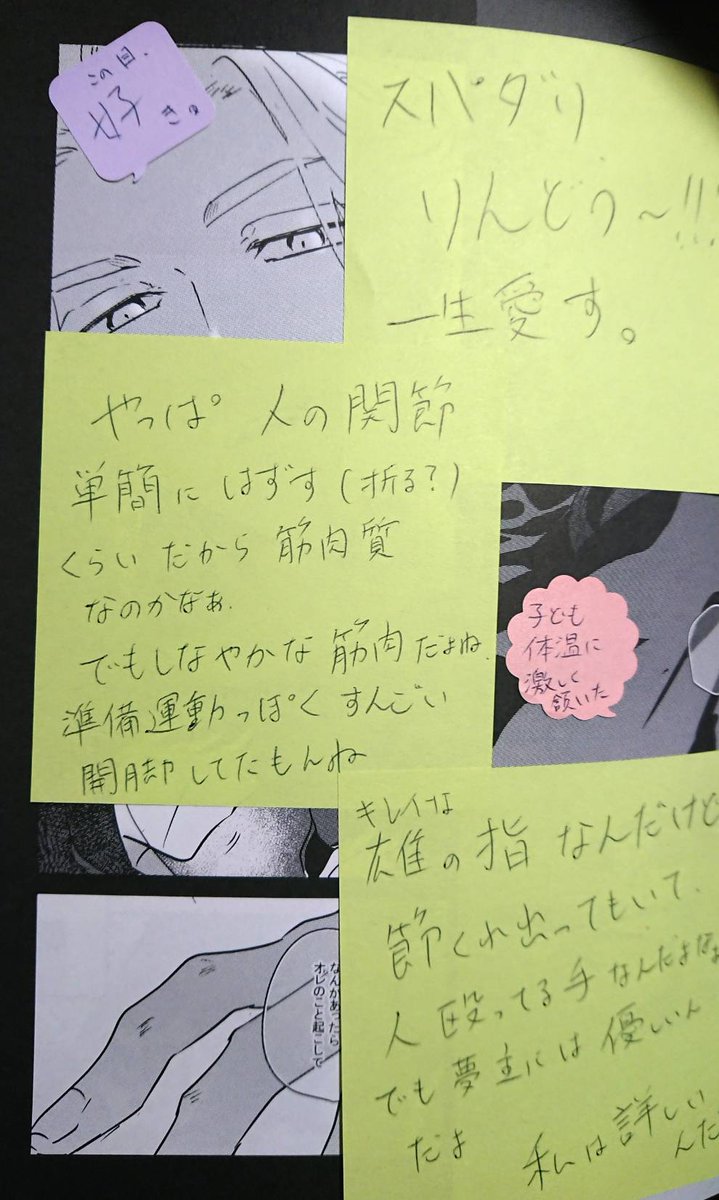 この目、
好
きっ
スパダり
りんどう〜!!!
一生愛す。
やっぱ 人の関節
単簡に はずす(折る?)
くらい だから 筋肉質
なのかなぁ.
でもしなやかな 筋肉だよね.
準備運動っぽく すんごい
開脚してたもんね
子ども
体温に
激しく
頷いた
キレイな
雄の指 なんだけど
節くれ出ってもいて、
人 殴ってる手なんだよなぁ
でも 夢主には 優しいん
だよ 私は詳しい
んだ
なんかあったら
オレのこと起こして